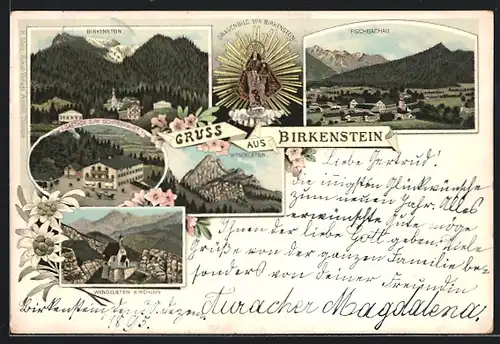 BIRKENSTEIN.
GNADENBILD VON BIRKENSTEIN
FISCHBACHAU
GRUSS AUS BIRKENSTEIN
WENDELSTEIN.
WENDELSTEIN KIRCHLEIN
Liebe Gertrud!
Die innigsten Glückwünsche
zum neuen Jahr. Alles
erwünschte Gute möge
Ihnen der liebe Gott geben, viele
Grüße von der ganzen Familie be-
sonders von deiner Freundin
Turacher Magdalena.
Birkenstein
1895.